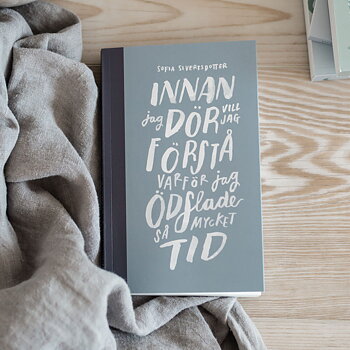 SOFIA SIVERTSDOTTER
INNAN
jag DÖR VILL JAG
FÖRSTÅ
VARFÖR jag
ÖDSlade
SÅ MYCKET
TID